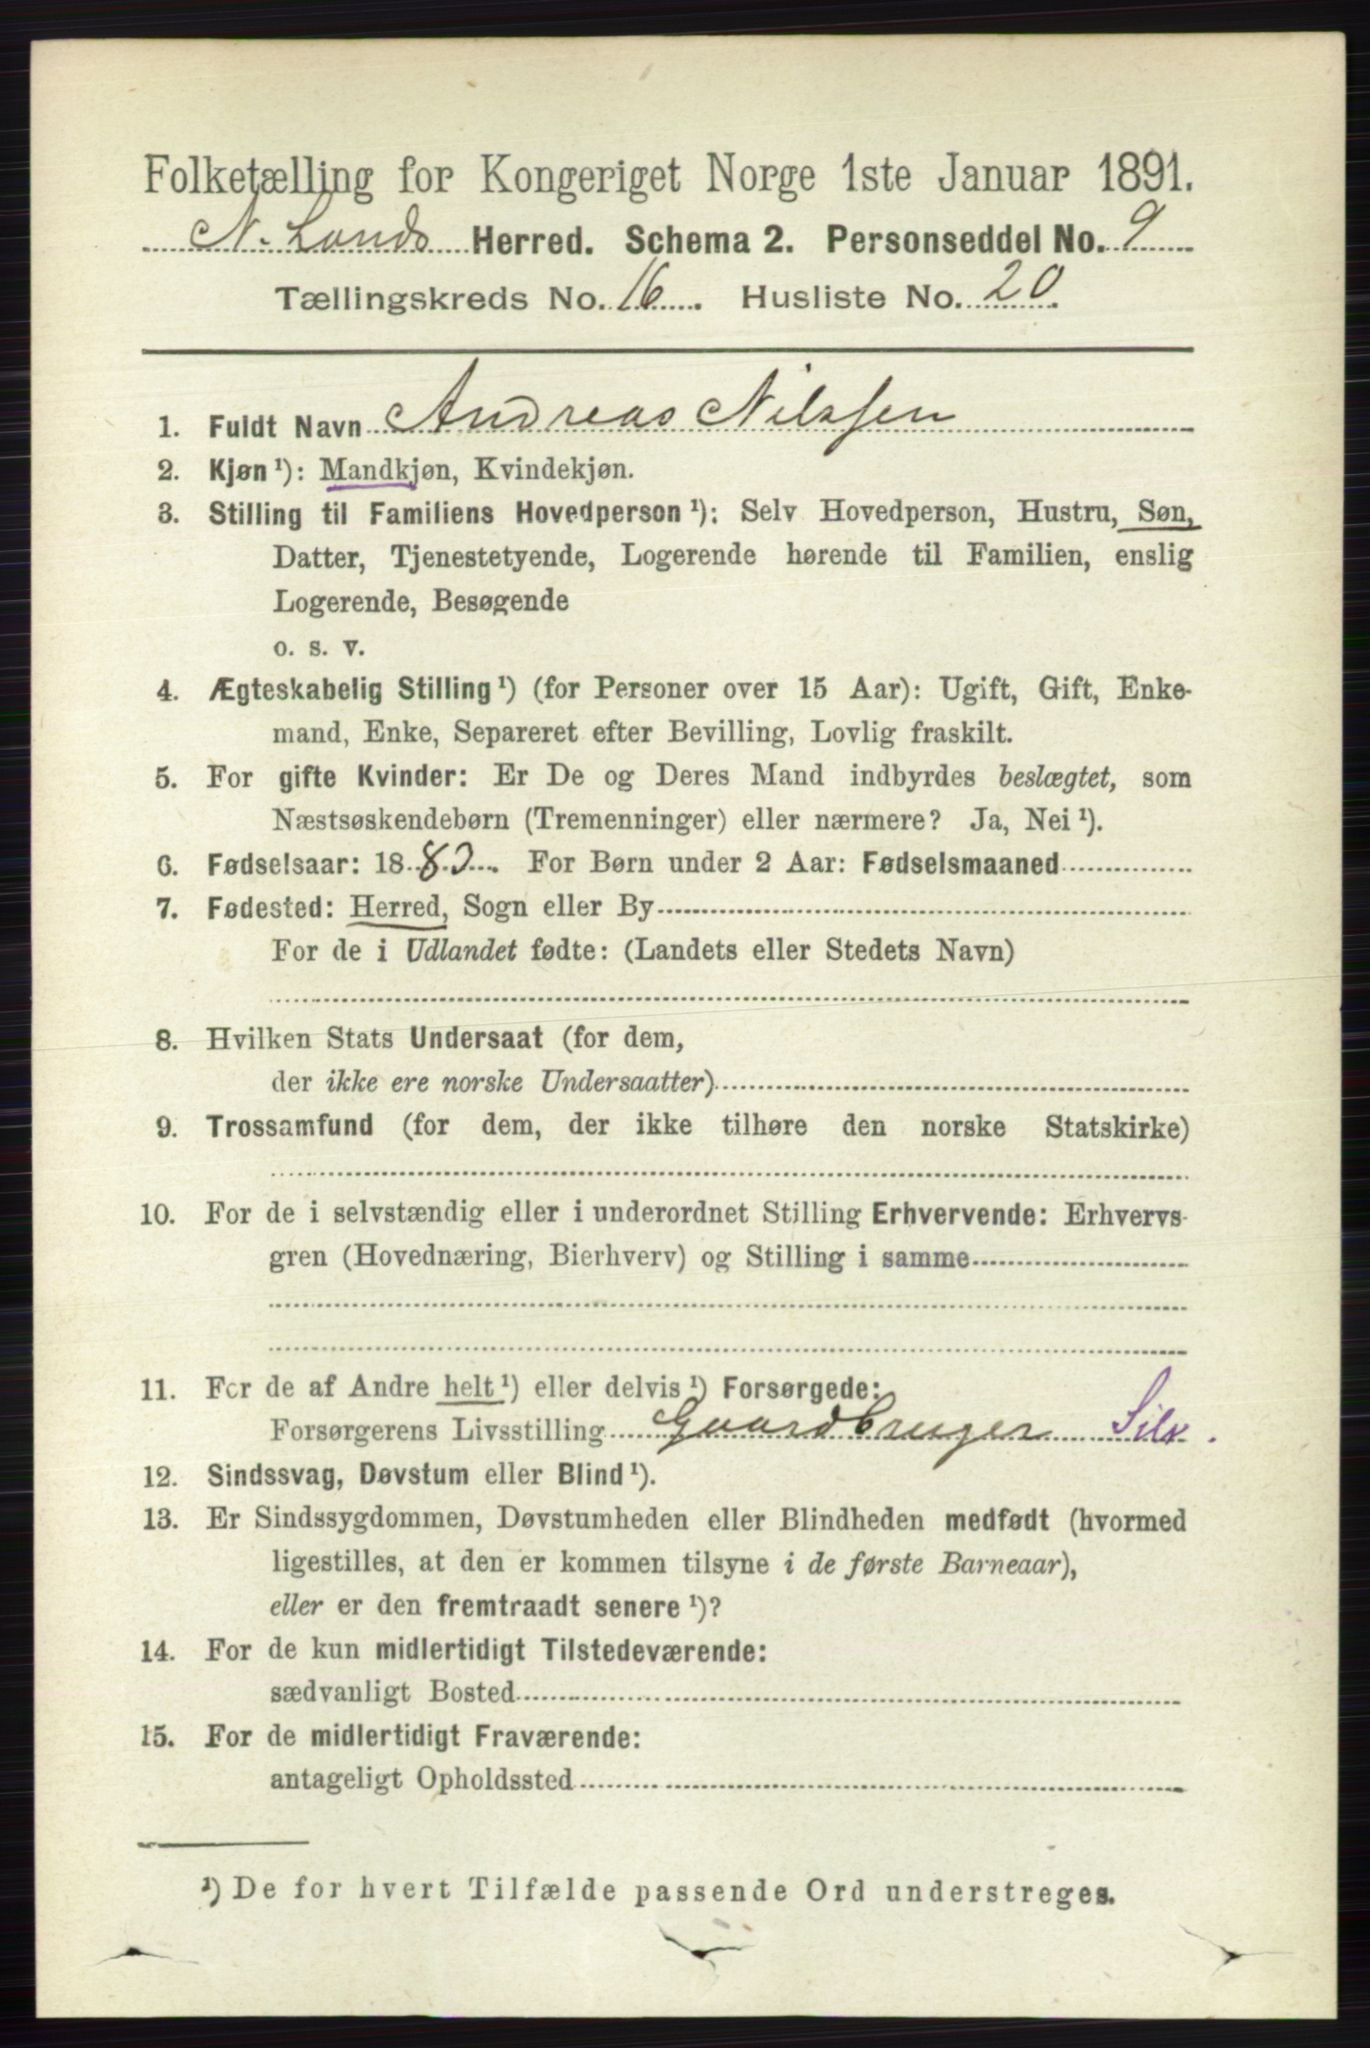 Folketælling for Kongeriget Norge 1ste Januar 1891.
N. Lands Herred. Schema 2. Personseddel No. 9
Tællingskreds No. 16. Husliste No. 20.
1. Fuldt Navn Andreas Nilssen
2. Kjøn¹): Mandkjøn, Kvindekjøn.
3. Stilling til Familiens Hovedperson¹): Selv Hovedperson, Hustru, Søn,
Datter, Tjenestetyende, Logerende hørende til Familien, enslig
Logerende, Besøgende
o. s. v.
4. Ægteskabelig Stilling¹) (for Personer over 15 Aar): Ugift, Gift, Enke-
mand, Enke, Separeret efter Bevilling, Lovlig fraskilt.
5. For gifte Kvinder: Er De og Deres Mand indbyrdes beslægtet, som
Næstsøskendebørn (Tremenninger) eller nærmere? Ja, Nei¹).
6. Fødselsaar: 1883. For Børn under 2 Aar: Fødselsmaaned
7. Fødested: Herred, Sogn eller By
For de i Udlandet fødte: (Landets eller Stedets Navn)
8. Hvilken Stats Undersaat (for dem,
der ikke ere norske Undersaatter)
9. Trossamfund (for dem, der ikke tilhøre den norske Statskirke)
10. For de i selvstændig eller i underordnet Stilling Erhvervende: Erhvervs-
gren (Hovednæring, Bierhverv) og Stilling i samme
11. For de af Andre helt¹) eller delvis¹) Forsørgede:
Forsørgerens Livsstilling Gaardbruger
12. Sindssvag, Døvstum eller Blind¹).
13. Er Sindssygdommen, Døvstumheden eller Blindheden medfødt (hvormed
ligestilles, at den er kommen tilsyne i de første Barneaar),
eller er den fremtraadt senere¹)?
14. For de kun midlertidigt Tilstedeværende:
sædvanligt Bosted
15. For de midlertidigt Fraværende:
antageligt Opholdssted
¹) De for hvert Tilfælde passende Ord understreges.